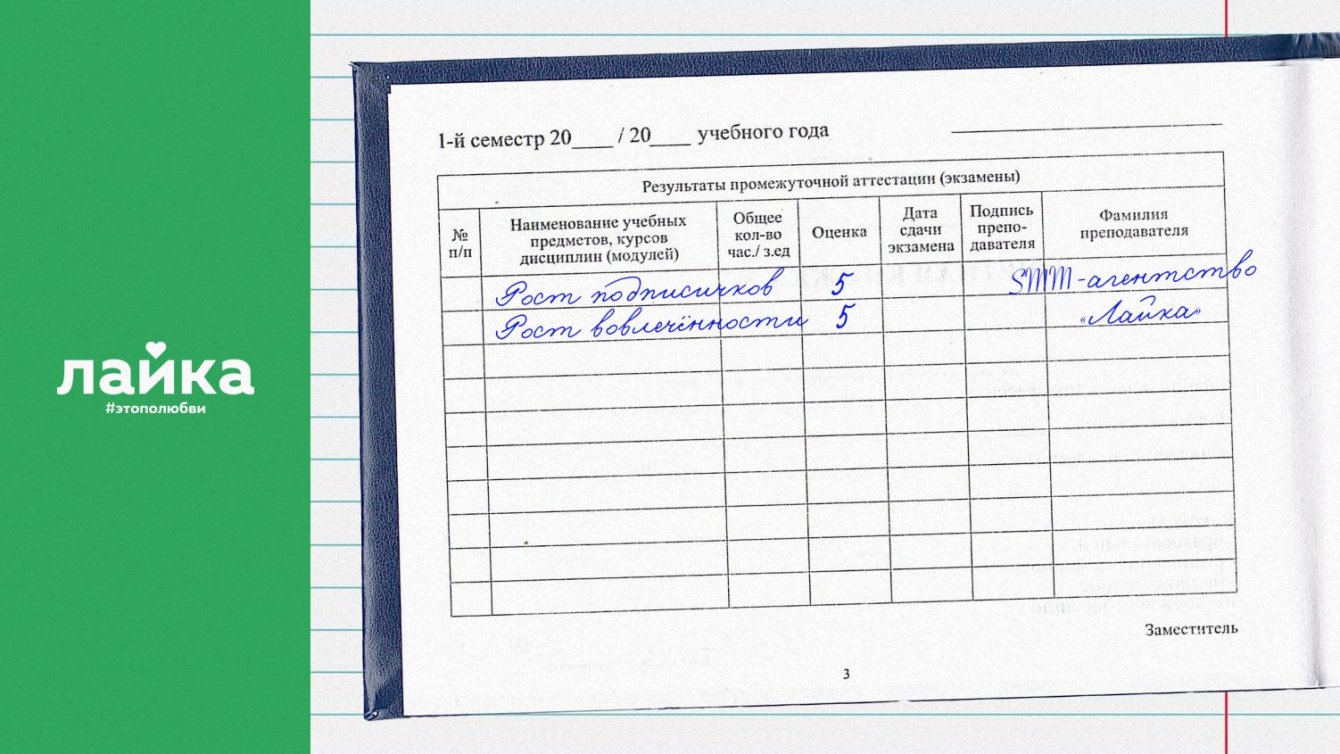 лайка
#этополюбви
1-й семестр 20____ / 20____ учебного года
Результаты промежуточной аттестации (экзамены)
№ п/п
Наименование учебных предметов, курсов дисциплин (модулей)
Общее кол-во час./ з.ед
Оценка
Дата сдачи экзамена
Подпись препо-давателя
Фамилия преподавателя
Рост подписичков 5 SMM-агентство
Рост вовлечённости 5 «Лайка»
Заместитель
3